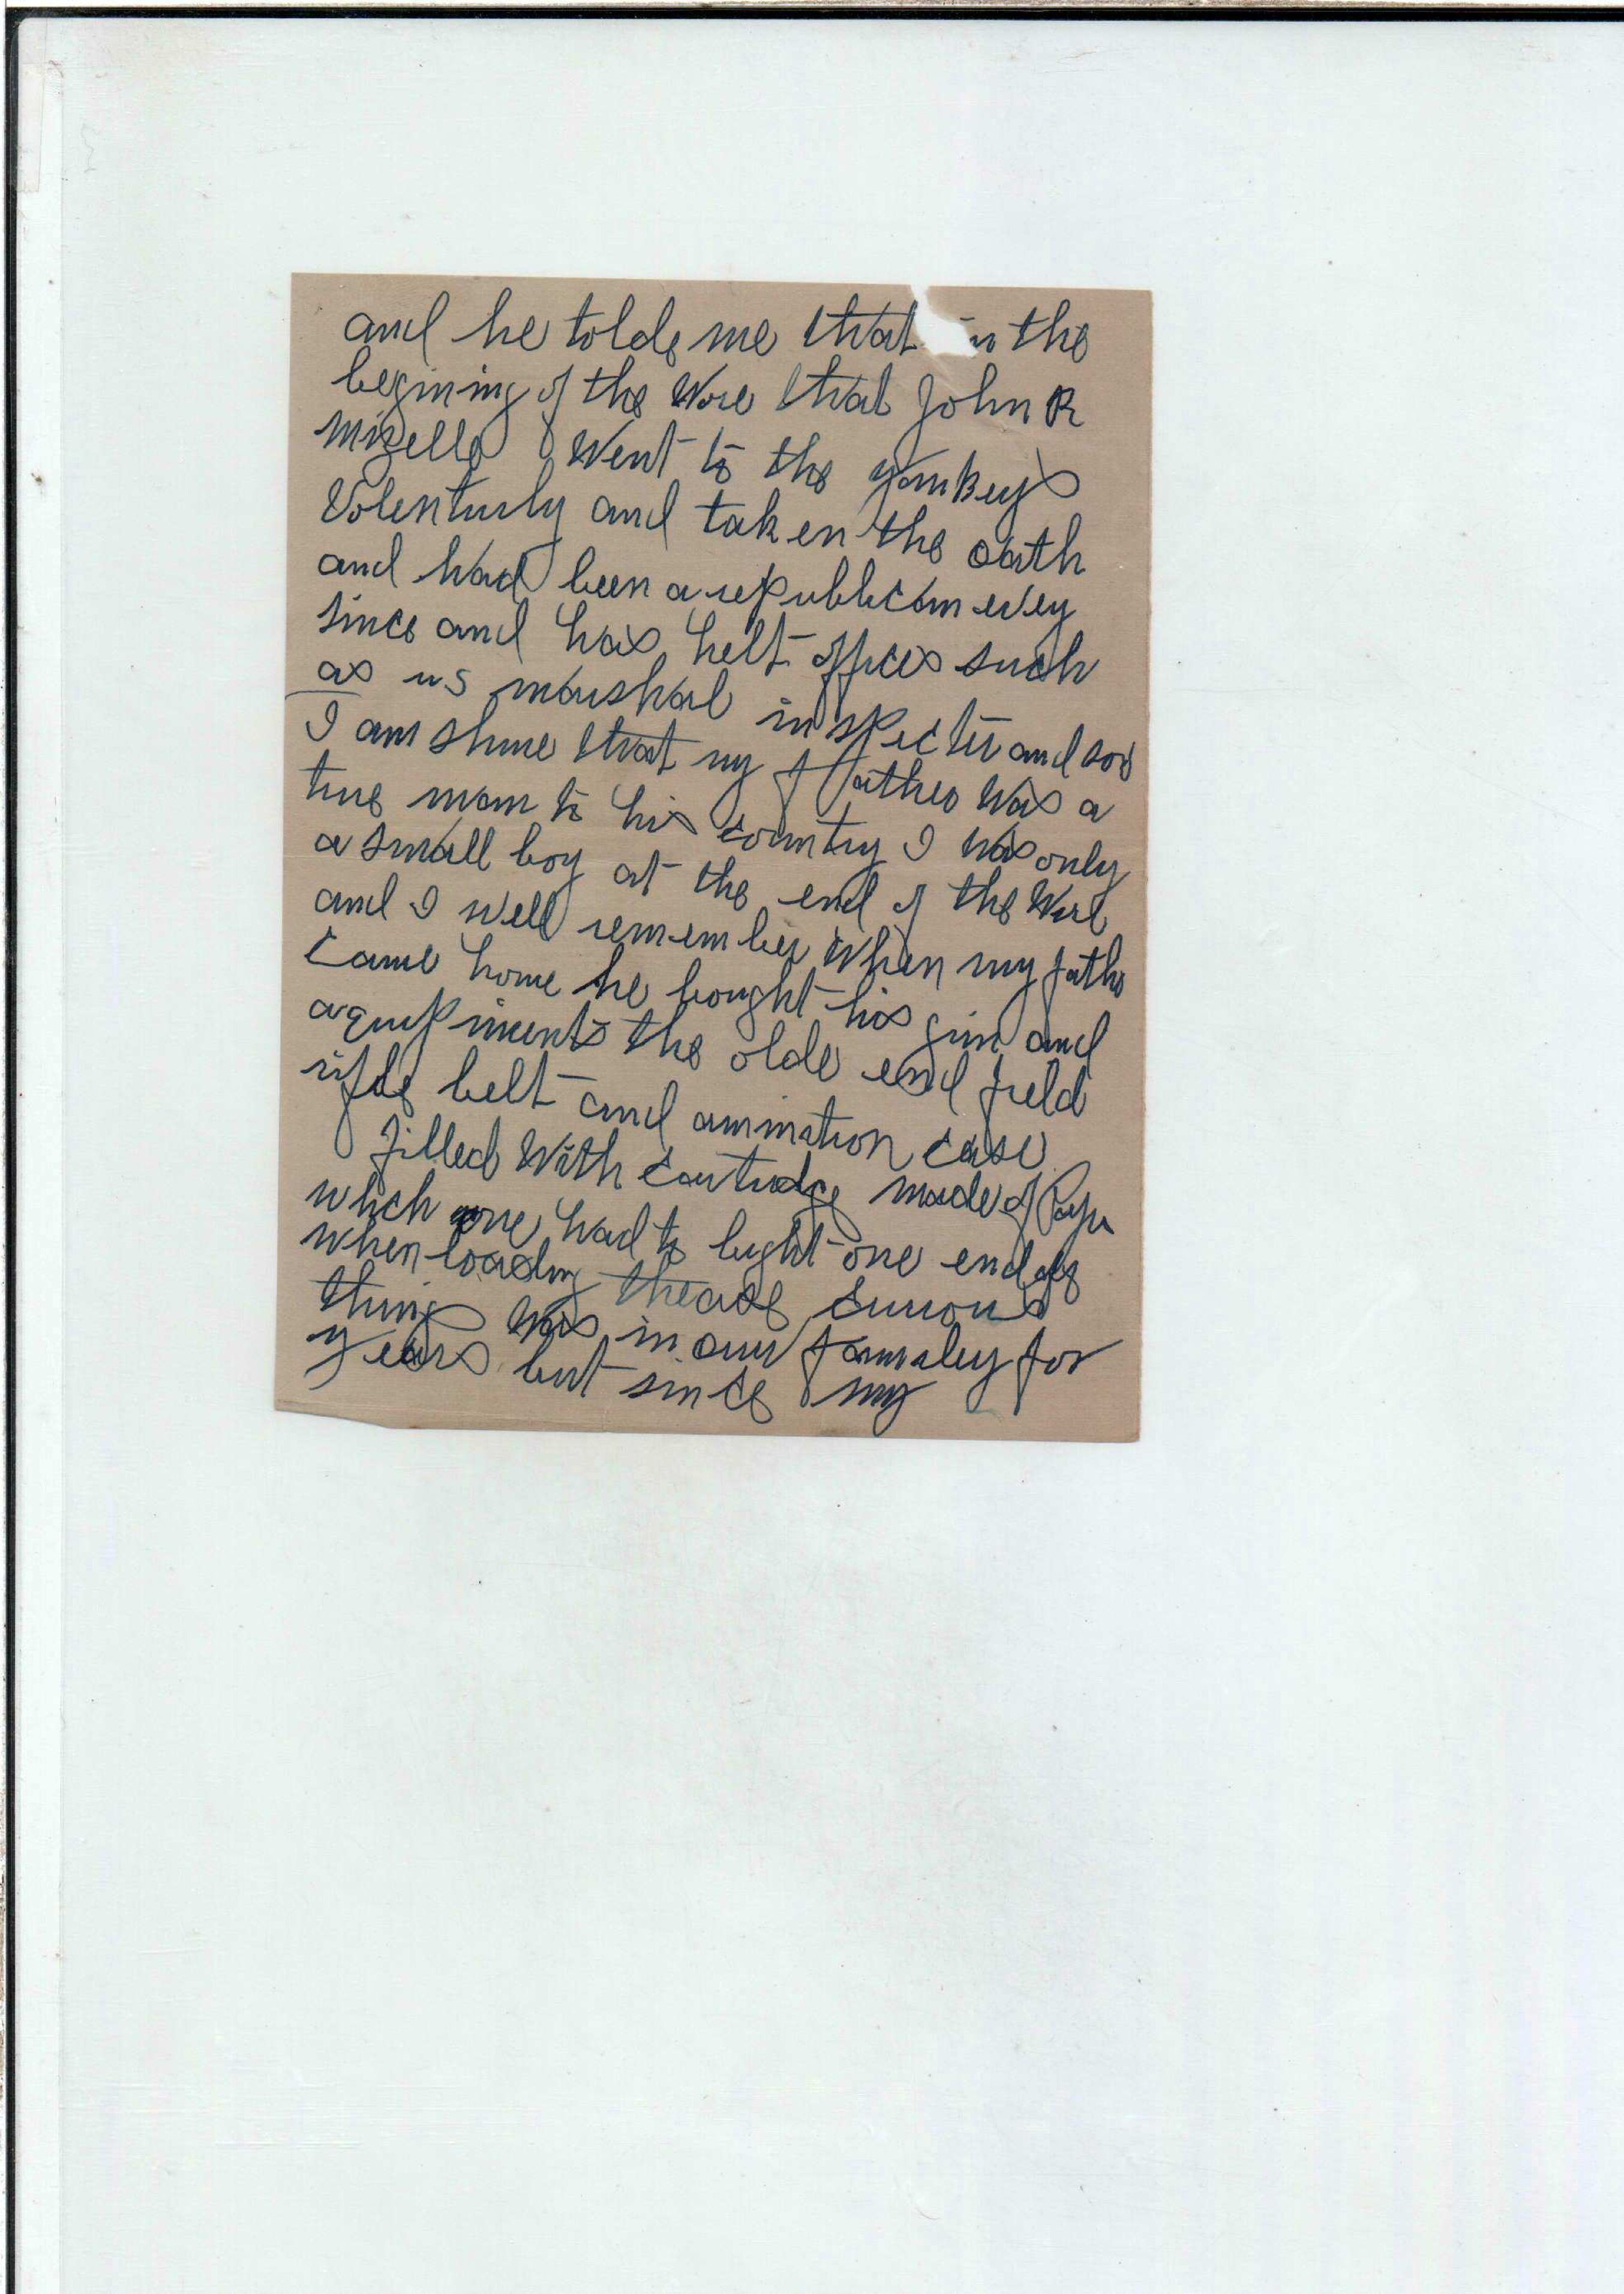 and he tolde me that in the
begining of the Wore that John R
Mizelle Went to the yankeys
Volenturly and taken the oath
and had been a republican evey
since and has helt offices such
as us marshal inspecter and so
I am shure that my father Was a
true man to his country I was only
a small boy at the end of the Wore
and I well remember When my father
Came home he bought his gun and
aquipments the olde end field
rifle belt and amination case
filled With Cartridge made of Paper
which one had to bight one end off
when loading thease Curious
things Was in our famaley for
years but since my